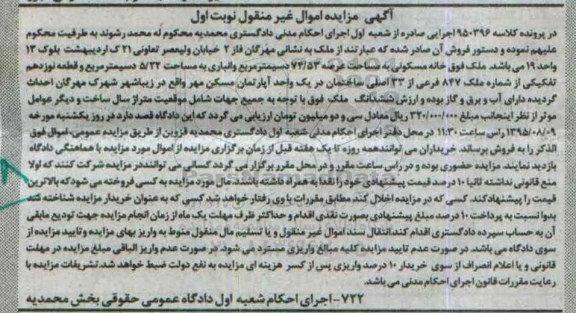 آگهی مزایده اموال غیر منقول نوبت اول
در پرونده کلاسه ۹۵۰۳۹۶ اجرایی صادره از شعبه اول اجرای احکام مدنی دادگستری محمدیه محکوم له محمد رشوند به ظرفیت محکوم
علیهم نموده و دستور فروش آن صادر شده که عبارتند از ملک به نشانی مهرگان فاز ۲ خیابان ولیعصر تعاونی ۲۱ ک اردیبهشت بلوک ۱۳
واحد ۱۹ می باشد. ملک فوق خانه مسکونی به عرصه ۷۴/۵۳ دسیمترمربع وانباری به مساحت ۵/۲۲ دسیمترمربع و قطعه نوزدهم
تفکیکی از شماره ملک ۸۴۷ فرعی از ۳۳ اصلی ساختمان در یک واحد آپارتمان مسکن مهر واقع در زیباشهر شهرک مهرگان احداث
گردیده دارای آب و برق و گاز بوده و ارزش ششدانگ ملک فوق با توجه به جمیع جهات شامل موقعیت متراژ سال ساخت و دیگر عوامل
موثر از نظر اینجانب مبلغ ۳۲۰/۰۰۰/۰۰۰ ریال معادل سی و دو میلیون تومان ارزیابی می گردد که این دادگاه قصد دارد در روز یکشنبه مورخه
۱۳۹۵/۰۸/۰۹ راس ساعت ۱۱:۳۰ در محل دفتر اجرای احکام مدنی شعبه اول دادگستری محمدیه قزوین از طریق مزایده عمومی، اموال فوق
الذکر را به فروش برساند. خریداران می توانند همه روزه تا یک هفته قبل از زمان برگزاری مزایده از اموال مورد مزایده با هماهنگی دادگاه
بازدید نمایند. مزایده حضوری بوده و در راس ساعت مقرر و در محل مقرر برگزار می گردد کسانی می توانند در مزایده شرکت کنند که اولا
منع قانونی نداشته ثانیا ۱۰ درصد قیمت پیشنهادی خود را نقدا به همراه داشته باشند. مال مورد مزایده به کسی فروخته می شود که بالاترین
قیمت را پیشنهاد کند. کسی که در مزایده اخلال کند مطابق مقررات با وی رفتار خواهد شد. کسی که به عنوان خریدار مزایده شناخته شد
بدوا نسبت به پرداخت ۱۰ درصد مبلغ پیشنهادی بصورت نقدی اقدام و حداکثر ظرف مهلت یک ماه از زمان انجام مزایده جهت تودیع مابقی
آن به حساب سپرده دادگستری اقدام کند. انتقال سند اموال غیر منقول و یا تسلیم مال منقول منوط به واریز بهای مزایده و تایید مزایده از
سوی دادگاه می باشد. در صورت عدم تایید مزایده کلیه مبالغ واریزی مسترد می شود. در صورت عدم واریز الباقی مبلغ مزایده در مهلت
قانونی و یا اعلام انصراف از سوی خریدار ۱۰ درصد واریزی پس از کسر هزینه ای مزایده به نفع دولت ضبط خواهد شد. تشریفات مزایده با
رعایت مقررات قانون اجرای احکام مدنی می باشد.
۷۲۲- اجرای احکام شعبه اول دادگاه عمومی حقوقی بخش محمدیه